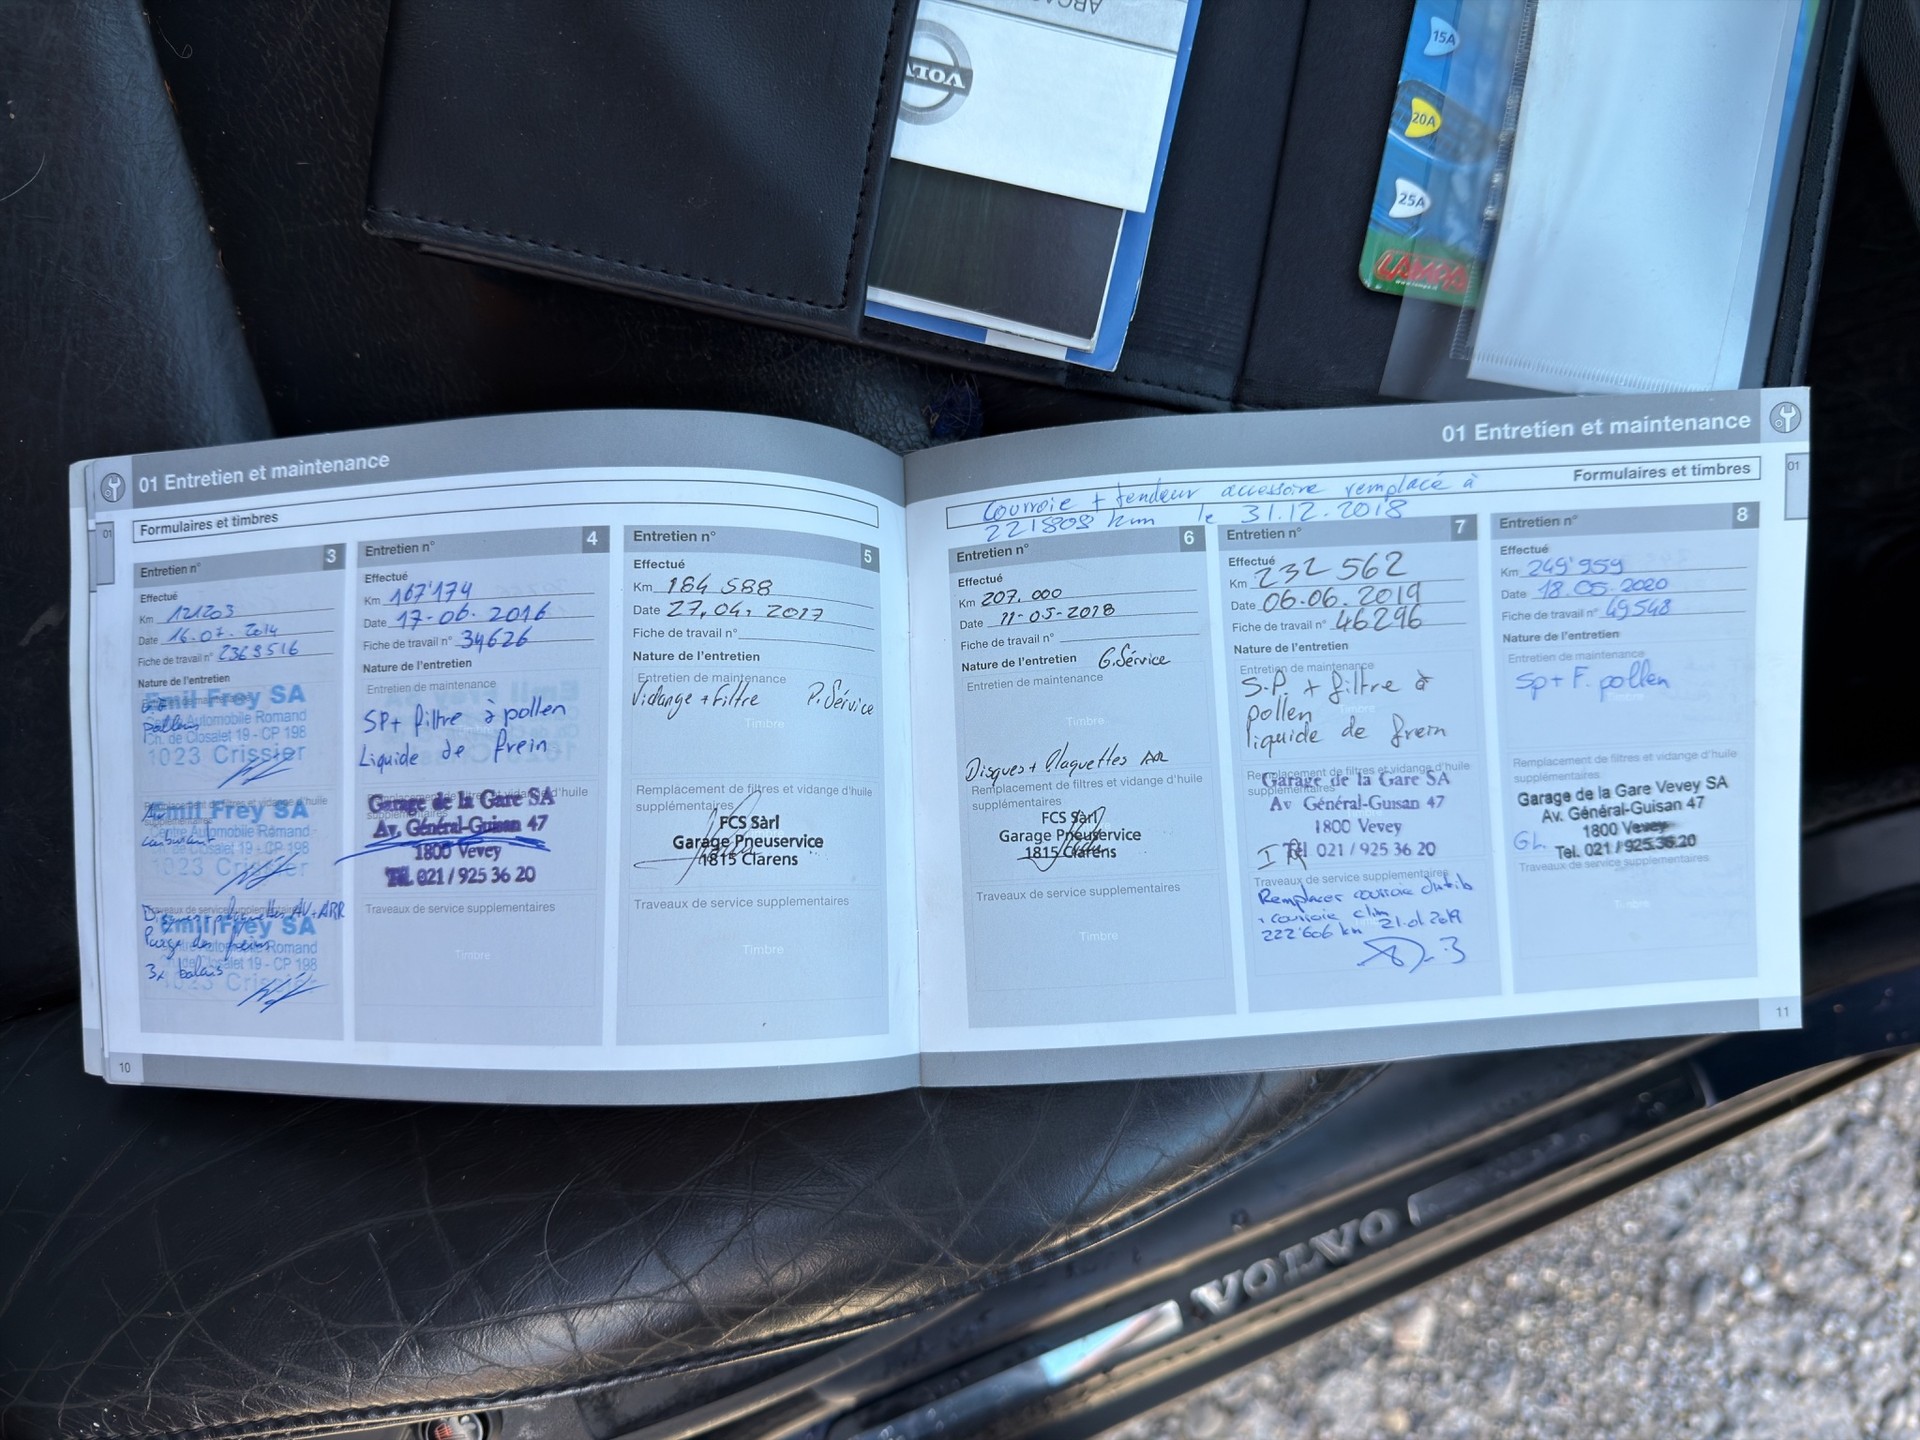 VOLVO
15A
20A
25A
LAMPA
01 Entretien et maintenance
Formulaires et timbres
01
Entretien n° 3
Effectué
Km 121203
Date 16.07.2014
Fiche de travail n° 2369516
Nature de l'entretien
Emil Frey SA
pollen
Centre Automobile Romand
Ch. de Closalet 19 - CP 198
1023 Crissier
Emil Frey SA
Centre Automobile Romand
de Closalet 19 - CP 198
1023 Crissier
Disques + plaquettes AV + ARR
Emil Frey SA
Purge des freins
Centre Automobile Romand
de Closalet 19 - CP 198
3x balais
1023 Crissier
10
Entretien n° 4
Effectué
Km 167'174
Date 17-06.2016
Fiche de travail n° 34626
Nature de l'entretien
Entretien de maintenance
SP+ filtre à pollen
Liquide de frein
Remplacement de filtres et vidange d'huile
supplémentaires
Garage de la Gare SA
Av. Général-Guisan 47
1800 Vevey
Tél. 021 / 925 36 20
Traveaux de service supplementaires
Timbre
Entretien n° 5
Effectué
Km 184 588
Date 27.04.2017
Fiche de travail n°
Nature de l'entretien
Entretien de maintenance
Vidange + Filtre P.Sérvice
Timbre
Remplacement de filtres et vidange d'huile
supplémentaires
FCS Sàrl
Garage Pneuservice
1815 Clarens
Traveaux de service supplementaires
Timbre
01 Entretien et maintenance
Formulaires et timbres
01
Courroie + tendeur accessoire remplacé à
221808 km le 31.12.2018
Entretien n° 6
Effectué
Km 207.000
Date 11-05-2018
Fiche de travail n°
Nature de l'entretien G.Sérvice
Entretien de maintenance
Timbre
Disques + Plaquettes AR
Remplacement de filtres et vidange d'huile
supplémentaires
FCS Sàrl
Garage Pneuservice
1815 Clarens
Traveaux de service supplementaires
Timbre
Entretien n° 7
Effectué
Km 232 562
Date 06.06.2019
Fiche de travail n° 46296
Nature de l'entretien
Entretien de maintenance
S.P. + filtre à
pollen
liquide de frein
Remplacement de filtres et vidange d'huile
Garage de la Gare SA
Av Général-Guisan 47
1800 Vevey
Tél 021 / 925 36 20
Traveaux de service supplementaires
Remplacer courroie distrib
+ courroie clim
222'606 km 21.01.2019
Entretien n° 8
Effectué
Km 249'959
Date 18.05.2020
Fiche de travail n° 49548
Nature de l'entretien
Entretien de maintenance
Sp + F. pollen
Remplacement de filtres et vidange d'huile
supplémentaires
Garage de la Gare Vevey SA
Av. Général-Guisan 47
1800 Vevey
GL
Tel. 021 / 925.36.20
Traveaux de service supplementaires
Timbre
11
VOLVO